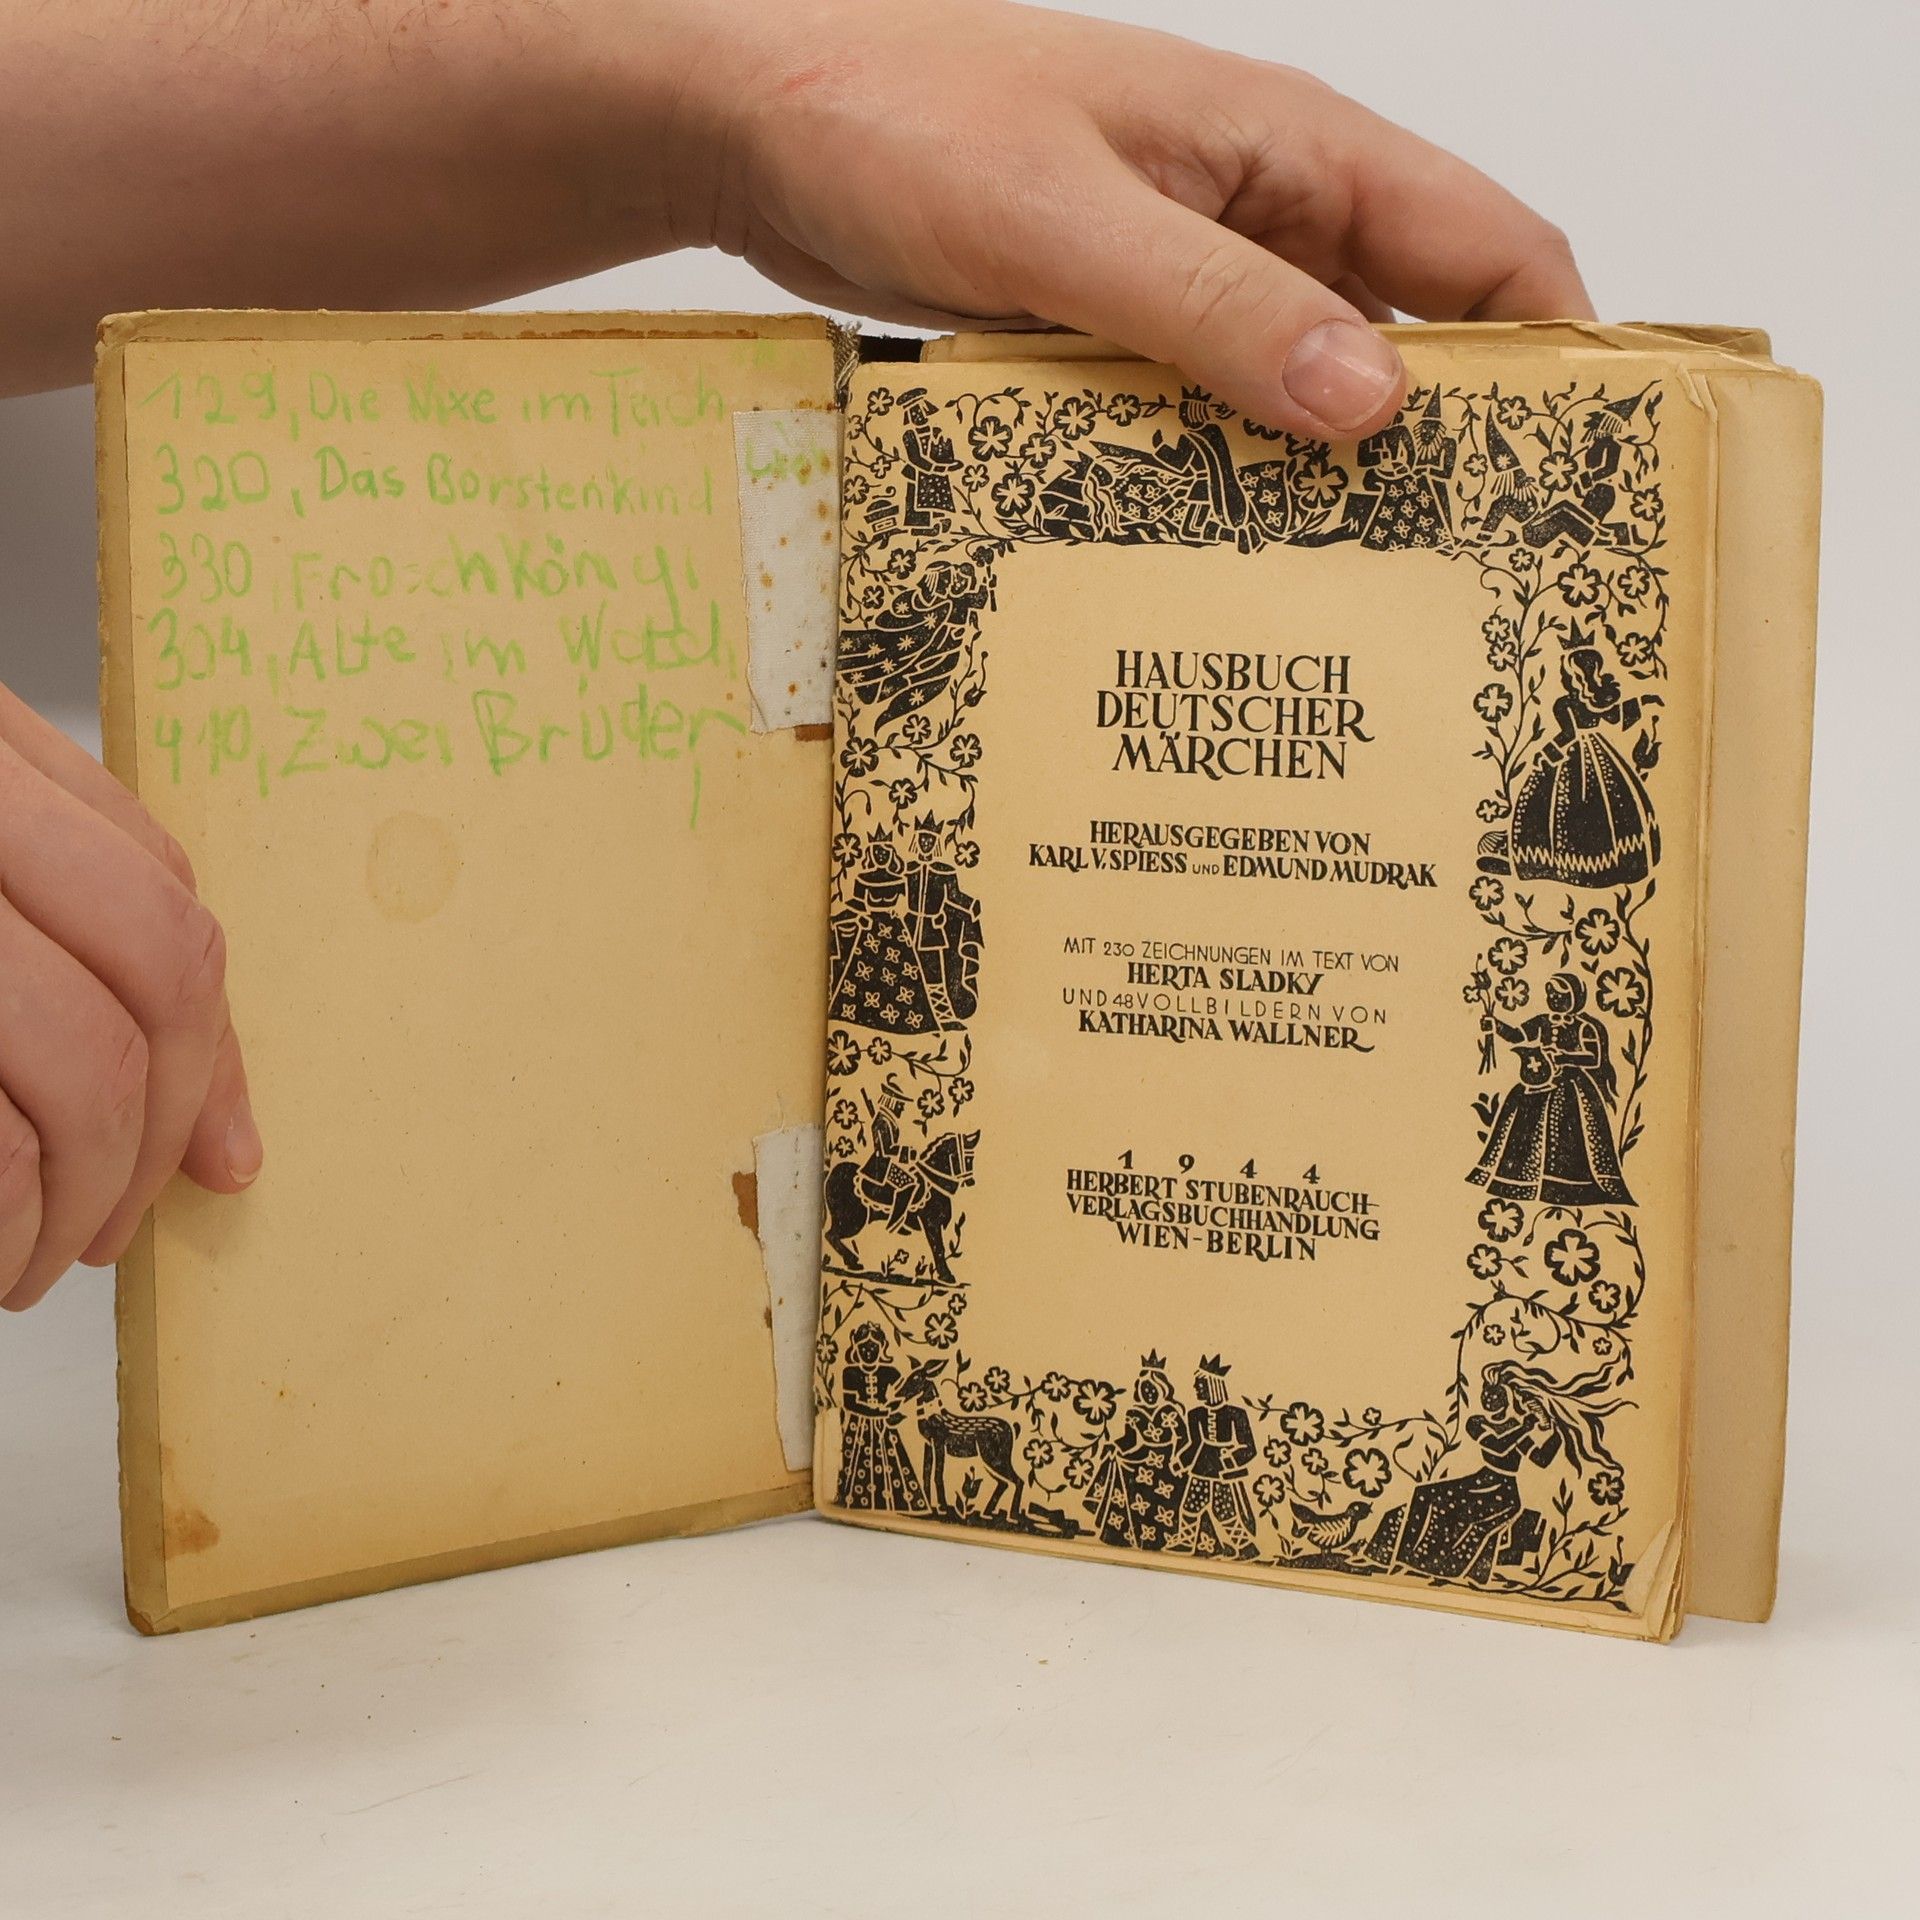 129, Die Nixe im Teich
320, Das Borstenkind
330, Froschkönig
304, Alte im Wald
410, Zwei Brüder
HAUSBUCH
DEUTSCHER
MÄRCHEN
HERAUSGEGEBEN VON
KARL V. SPIESS UND EDMUND MUDRAK
MIT 230 ZEICHNUNGEN IM TEXT VON
HERTA SLADKY
UND 48 VOLLBILDERN VON
KATHARINA WALLNER
1944
HERBERT STUBENRAUCH-
VERLAGSBUCHHANDLUNG
WIEN-BERLIN